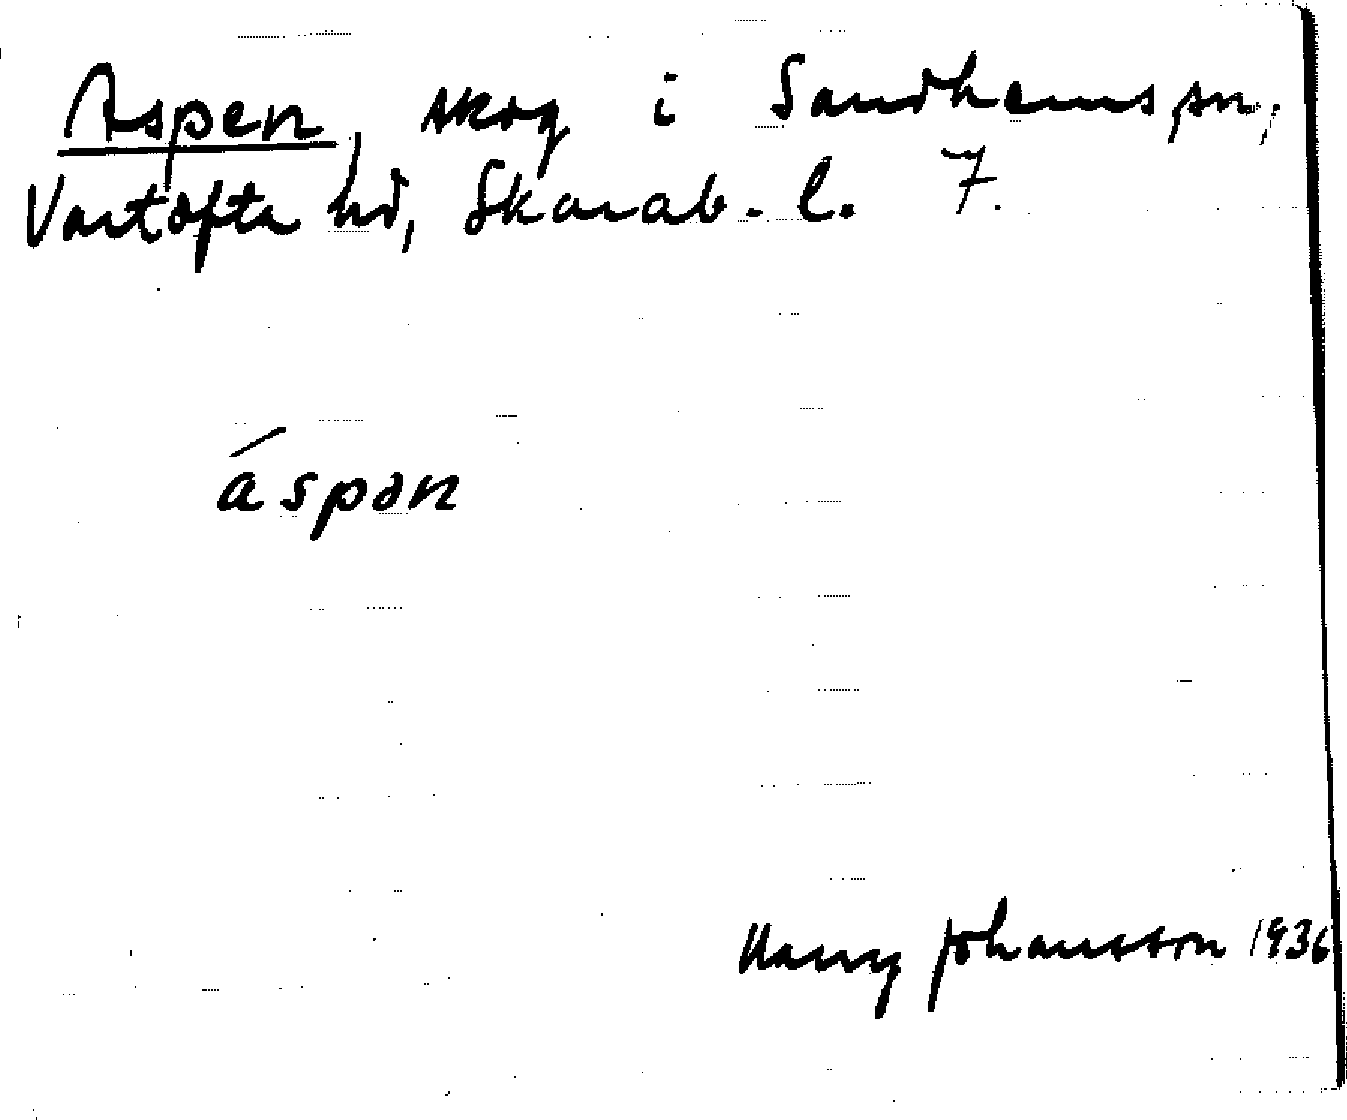 Aspen, skog i Sandhems sn,
Vartofta hd, Skarab. l. 7.
áspən
Harry Johansson 1936